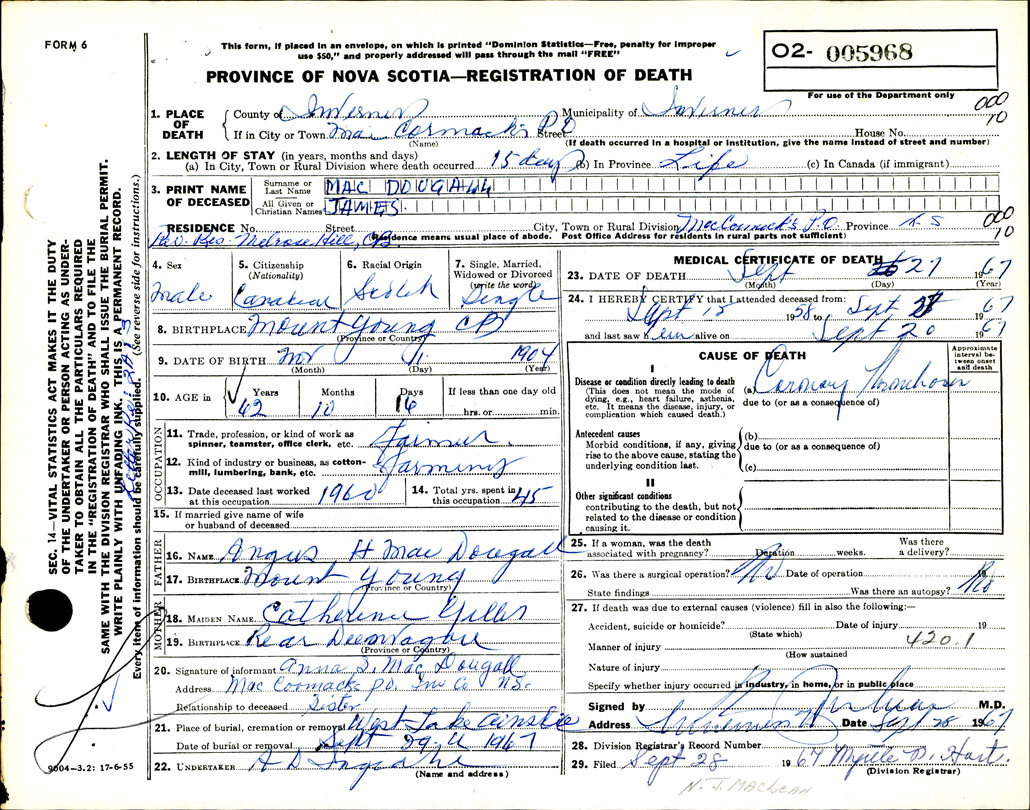 FORM 6
This form, if placed in an envelope, on which is printed "Dominion Statistics—Free, penalty for improper
use $50," and properly addressed will pass through the mail "FREE"
O2- 005968
PROVINCE OF NOVA SCOTIA—REGISTRATION OF DEATH
For use of the Department only
000
10
1. PLACE OF DEATH County of Inverness Municipality of Inverness
If in City or Town Mac Cormack's P.O Street House No.
(Name) (If death occurred in a hospital or institution, give the name instead of street and number)
2. LENGTH OF STAY (in years, months and days)
(a) In City, Town or Rural Division where death occurred 15 days (b) In Province Life (c) In Canada (if immigrant)
3. PRINT NAME OF DECEASED Surname or Last Name MAC DOUGALL
All Given or Christian Names JAMES.
RESIDENCE No. Street City, Town or Rural Division MacCormack's P.O. Province N. S
000
10
Rev. Res. Melrose Hill, CB Residence means usual place of abode. Post Office Address for residents in rural parts not sufficient)
4. Sex Male
5. Citizenship (Nationality) Canadian
6. Racial Origin Scotch
7. Single, Married, Widowed or Divorced (write the word) Single
8. BIRTHPLACE Mount Young CB
(Province or Country)
9. DATE OF BIRTH Nov 11 1904
(Month) (Day) (Year)
10. AGE in Years 62 Months 10 Days 16 If less than one day old hrs. or min.
OCCUPATION
11. Trade, profession, or kind of work as spinner, teamster, office clerk, etc. Farmer.
12. Kind of industry or business, as cotton-mill, lumbering, bank, etc. Farming
13. Date deceased last worked at this occupation 1960
14. Total yrs. spent in this occupation 45
15. If married give name of wife or husband of deceased
FATHER
16. NAME Angus H Mac Dougall
17. BIRTHPLACE Mount Young
(Province or Country)
MOTHER
18. MAIDEN NAME Catherine Gillis
19. BIRTHPLACE Rear
(Province or Country)
20. Signature of informant Anna S. Mac Dougall
Address Mac Cormacks P.O. Inv Co N.S.
Relationship to deceased Sister
21. Place of burial, cremation or removal West Lake Ainslie
Date of burial or removal Sept 29th 1967
22. UNDERTAKER A D
(Name and address)
MEDICAL CERTIFICATE OF DEATH
23. DATE OF DEATH Sept 27 1967
(Month) (Day) (Year)
24. I HEREBY CERTIFY that I attended deceased from:
Sept 15 1958 to Sept 27 1967
and last saw him alive on Sept 20 1967
CAUSE OF DEATH
Approximate interval between onset and death
I
Disease or condition directly leading to death
(This does not mean the mode of dying, e.g., heart failure, asthenia, etc. It means the disease, injury, or complication which caused death.)
(a) Coronary Thrombosis
due to (or as a consequence of)
Antecedent causes
Morbid conditions, if any, giving rise to the above cause, stating the underlying condition last.
(b)
due to (or as a consequence of)
(c)
II
Other significant conditions
contributing to the death, but not related to the disease or condition causing it.
25. If a woman, was the death associated with pregnancy? Duration weeks. Was there a delivery?
26. Was there a surgical operation? No Date of operation 19
State findings Was there an autopsy? No
27. If death was due to external causes (violence) fill in also the following:—
Accident, suicide or homicide? Date of injury 19
(State which)
Manner of injury 420.1
(How sustained
Nature of injury
Specify whether injury occurred in industry, in home, or in public place
Signed by M.D.
Address Inverness NS Date Sept 28 1967
28. Division Registrar's Record Number
29. Filed Sept 28 1967 Myrtle D. Hart.
(Division Registrar)
N. J. MACLEAN
SEC. 14—VITAL STATISTICS ACT MAKES IT THE DUTY
OF THE UNDERTAKER OR PERSON ACTING AS UNDER-
TAKER TO OBTAIN ALL THE PARTICULARS REQUIRED
IN THE "REGISTRATION OF DEATH" AND TO FILE THE
SAME WITH THE DIVISION REGISTRAR WHO SHALL ISSUE THE BURIAL PERMIT.
WRITE PLAINLY WITH UNFADING INK. THIS IS A PERMANENT RECORD.
Every item of information should be carefully supplied. (See reverse side for instructions.)
9004—3.2: 17-6-55